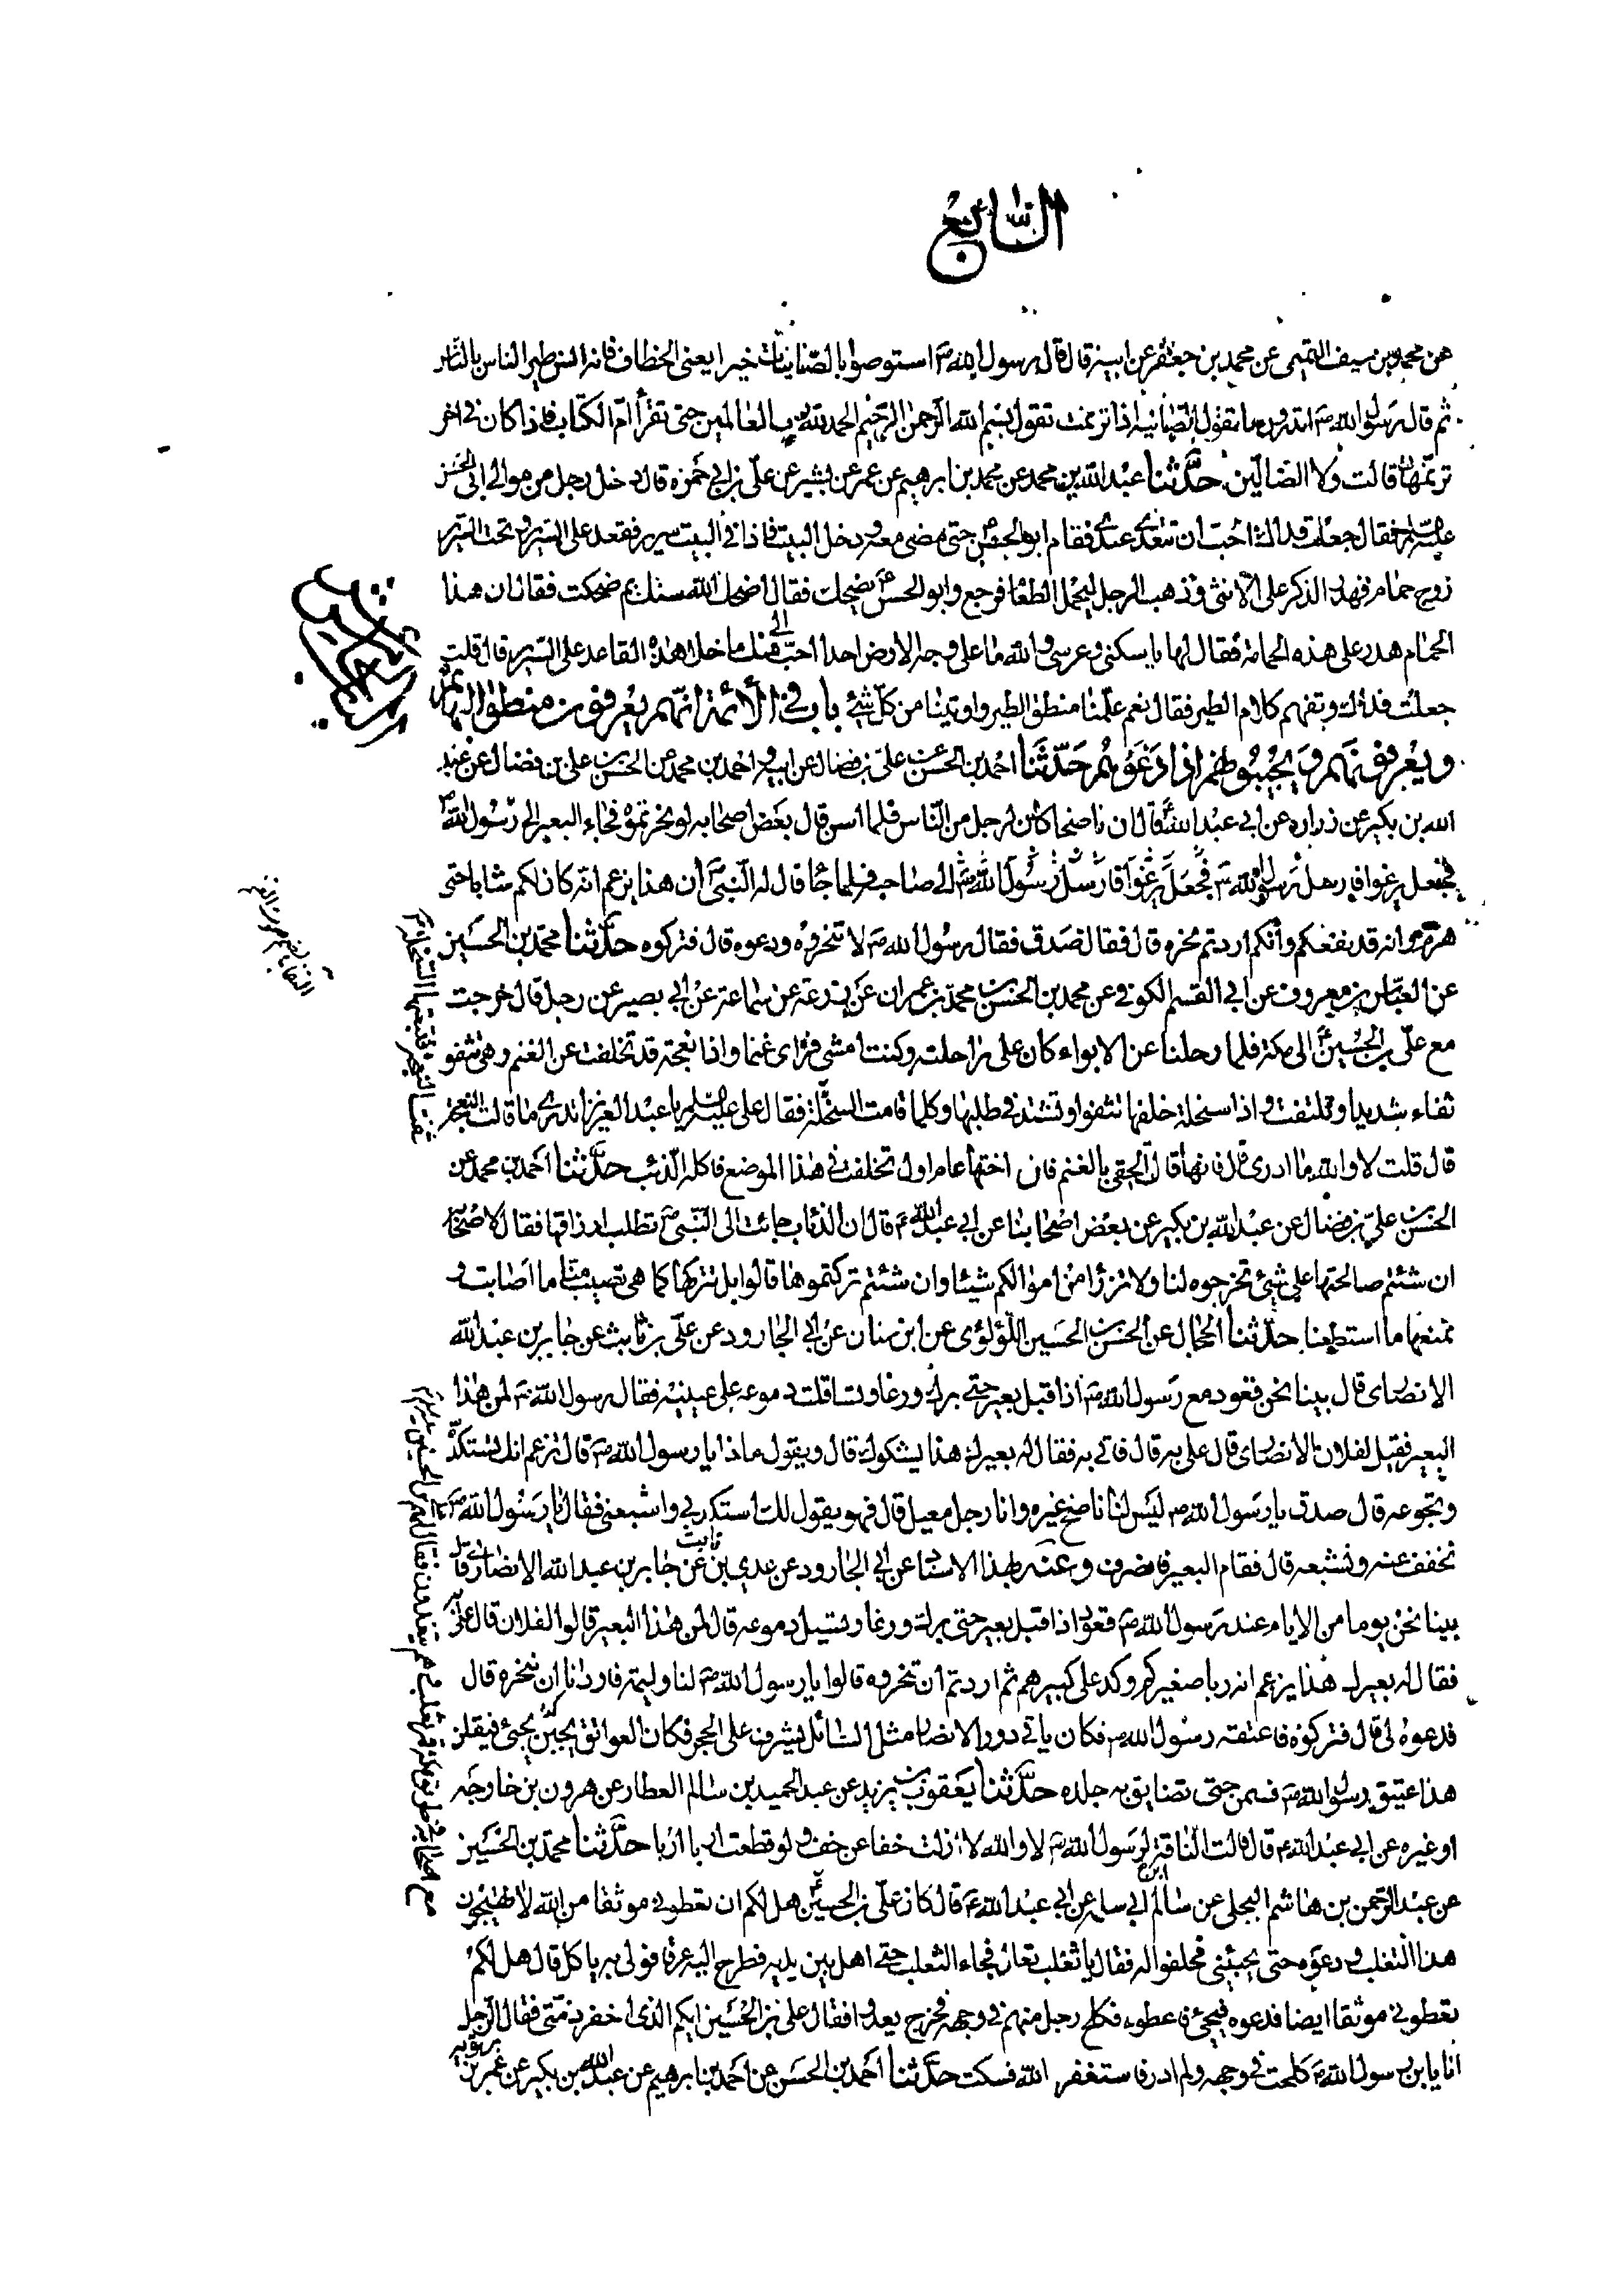 السابع
عن محمد بن سيف التميمى عن محمد بن جعفر عن ابيه قال قال رسول الله ص استوصوا بالصنانيات خيرا يعنى الخطاف فانه انس طير الناس بالناس
ثم قال رسول الله ص اتدرون ما تقول الصنانية اذا ترنمت تقول بسم الله الرحمن الرحيم الحمد لله رب العالمين حتى تقرأ ام الكتاب فاذا كان فى اخر
ترنمها قالت ولا الضالين حدثنا عبد الله بن محمد عن محمد بن ابرهيم عن عمر عن بشير عن على بن ابى حمزه قال دخل رجل من موالى ابى الحسن
عليه السلم فقال جعلت فداك احب ان تتغدى عندى فقام ابو الحسن حتى مضى معه ودخل البيت فاذا فى البيت سرير فقعد على السرير وتحت السرير
زوج حمام فهدر الذكر على الانثى وذهب الرجل ليحمل الطعام فرجع وابو الحسن ع يضحك فقال اضحك الله سنك بم ضحكت فقال ان هذا
الحمام هدر على هذه الحمامة فقال لها يا سكنى وعرسى والله ما على وجه الارض احدا احب الى منك ما خلا هذا القاعد على السرير قال قلت
جعلت فداك وتفهم كلام الطير فقال نعم علمنا منطق الطير واوتينا من كل شئ باب فى الأئمة انهم يعرفون منطق البهائم
ويعرفونهم ويجيبوهم اذا دعوهم حدثنا احمد بن الحسن بن على بن فضال عن ابيه و احمد بن محمد عن الحسن بن على بن فضال عن عبد
الله بن بكير عن زراره عن ابى عبد الله ع قال ان ناضحا كان لرجل من الناس فلما اسن قال بعض اصحابه لو نحرتموه فجاء البعير الى رسول الله ص
فجعل يرغوا فارسل رسول الله ص فجعل يرغوا فارسل رسول الله ص الى صاحبه فلما جاء قال له النبى ص ان هذا يزعم انه كان لكم شابا حتى
هرم وانه قد نفعكم وانكم اردتم نحره قال فقال صدق فقال رسول الله ص لا تنحروه ودعوه قال فتركوه حدثنا محمد بن الحسين
عن العباس بن معروف عن ابى القسم الكوفى عن محمد بن الحسن بن محمد بن عمران عن زرعة عن سماعة عن ابى بصير عن رجل قال خرجت
مع على بن الحسين ع الى مكة فلما رحلنا عن الابواء كان على راحلته وكنت امشى فراى غنما واذا نعجة قد تخلفت عن الغنم وهى تثغو
ثغاء شديدا وتلتفت واذا سخلة خلفها تثغوا وتشتد فى طلبها وكلما قامت السخلة فقال على عليه السلم يا عبد العزيز اتدرى ما قالت النعجة
قال قلت لا والله ما ادرى قال فانها قالت الحقى بالغنم فان اختها عام اول تخلفت فى هذا الموضع فاكلها الذئب حدثنا احمد بن محمد عن
الحسن بن على بن فضال عن عبد الله بن بكير عن بعض اصحابنا عن ابى عبد الله ع قال ان الذئاب جائت الى النبى ص تطلب ارزاقها فقال لاصحابه
ان شئتم صالحتها على شئ تخرجوه لنا ولا ترزأ من اموالكم شيئا وان شئتم تركتموها قالوا بل نتركها كما هى تصيب منا ما اصابت و
نمنعها ما استطعنا حدثنا الحجال عن الحسن بن الحسين اللؤلؤى عن ابن سنان عن ابى الجارود عن على بن ثابت عن جابر بن عبد الله
الانصارى قال بينا نحن قعود مع رسول الله ص اذا اقبل بعير حتى برك ورغا وتساقلت دموعه على عينيه فقال رسول الله ص لمن هذا
البعير فقيل لفلان الانصارى قال على به قال فاتى به فقال له بعيرك هذا يشكوك قال ويقول ماذا يا رسول الله ص قال تزعم انك تستكده
وتجوعه قال صدق يا رسول الله ص ليس لنا ناضح غيره وانا رجل معيل قال فهو يقول لك استكدنى واشبعنى فقال يا رسول الله ص
نخفف عنه ونشبعه قال فقام البعير فانصرف وعنه بهذا الاسناد عن ابى الجارود عن عدى بن ثابت عن جابر بن عبد الله الانصارى قال
بينا نحن يوما من الايام عند رسول الله ص قعود اذا اقبل بعير حتى برك ورغا وتسيل دموعه قال لمن هذا البعير قالوا لفلان قال على به
فقال له بعيرك هذا يزعم انه ربا صغيركم وكد على كبيركم ثم اردتم ان تنحروه قالوا يا رسول الله ص لنا وليمة فاردنا ان ننحره قال
فدعوه لى قال فتركوه فاعتقه رسول الله ص فكان ياتى دور الانصار مثل السائل يشرف على الحجر فكان العواتق يجبين له حتى يجئ فيقلن
هذا عتيق رسول الله ص فسمن حتى تضايق به جلده حدثنا يعقوب بن يزيد عن عبد الحميد بن سالم العطار عن هرون بن خارجه
او غيره عن ابى عبد الله ع قال قالت الناقة لرسول الله ص لا والله لا ازلت خفا عن خف ولو قطعت اربا اربا حدثنا محمد بن الحسين
عن عبد الرحمن بن هاشم البجلى عن سالم ابى سلمة عن ابى عبد الله ع قال كان على بن الحسين ع هل لكم ان تعطونى موثقا من الله لا تهيجون
هذا الثعلب ودعوه حتى يجيئنى فحلفوا له فقال يا ثعلب تعال فجاء الثعلب حتى اهل بين يديه فطرح اليه عرقا فولى به ياكل قال هل لكم
تعطونى موثقا ايضا فدعوه فيجئ فاعطوه فكلح رجل منهم فى وجهه فخرج يعدوا فقال على بن الحسين ايكم الذى اخفر ذمتى فقال الرجل
انا يا ابن رسول الله ص كلحت فى وجهه ولم ادر فاستغفر الله فسكت حدثنا احمد بن الحسن عن احمد بن ابرهيم عن عبد الله بن بكير عن عمر بن
ثغت النعجة فتبعتها السخلة
مع اصحابه فى طريق مكة فمر ثعلب وهم يتغدون فقال لهم على بن الحسين